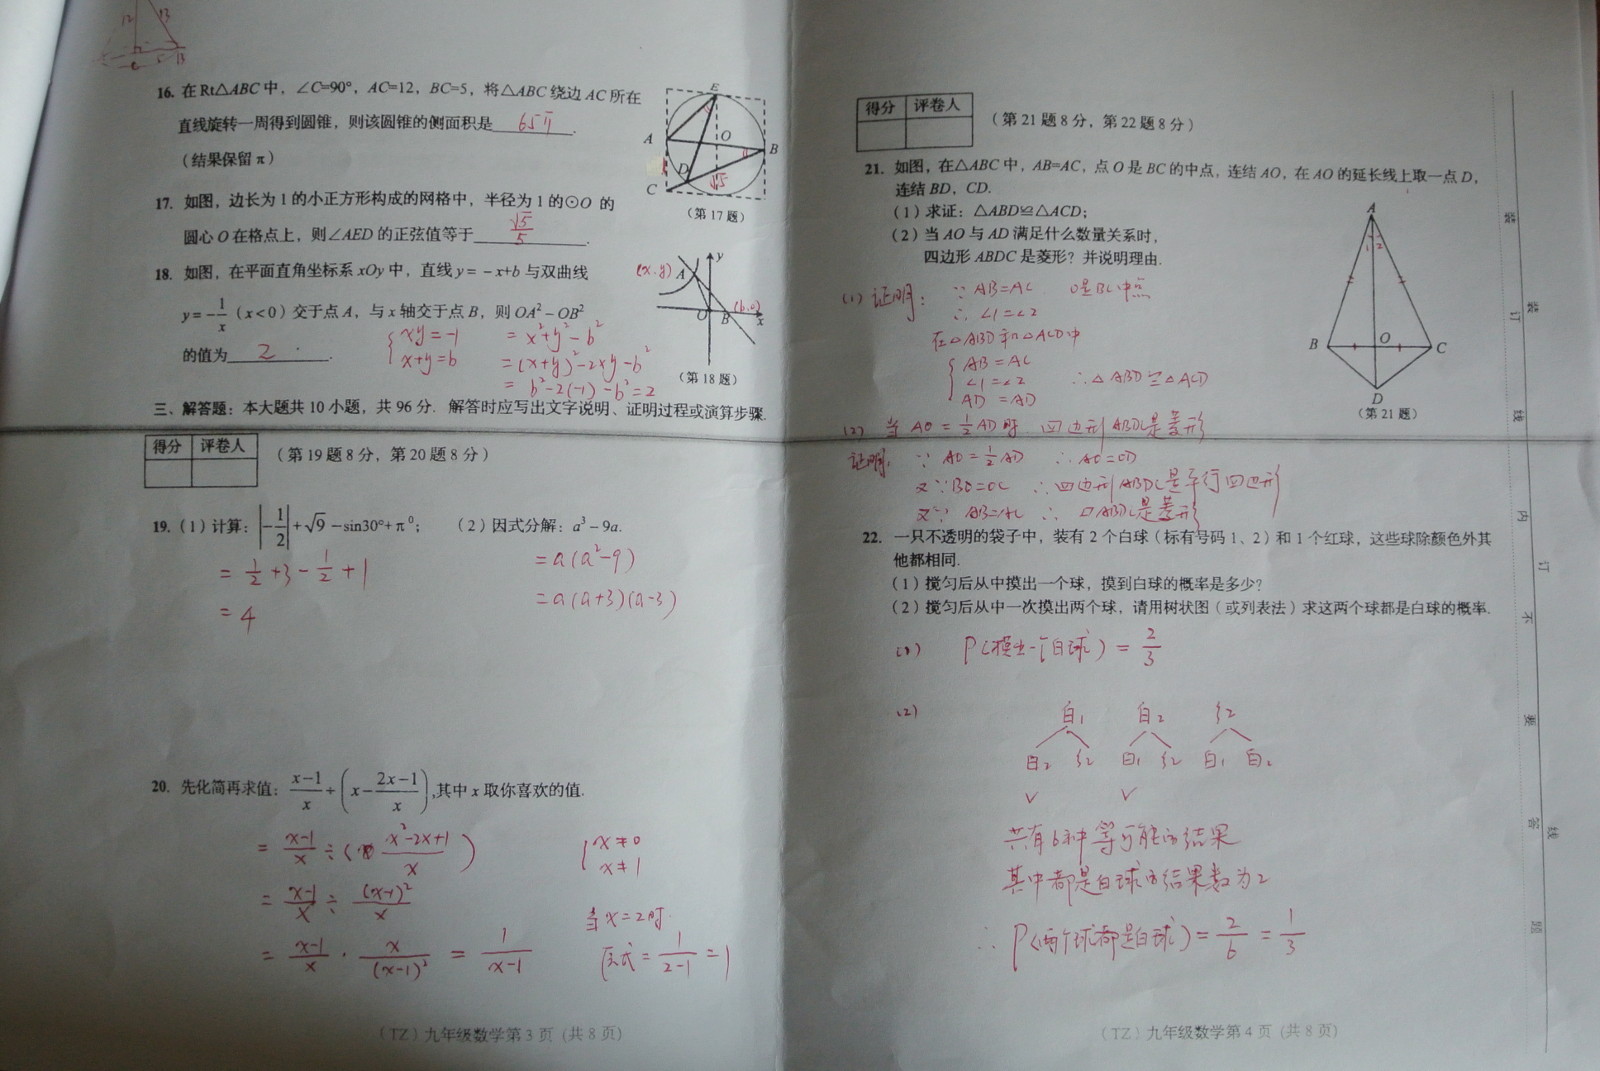 12 13
5
16. 在Rt△ABC中，∠C=90°，AC=12，BC=5，将△ABC绕边AC所在
直线旋转一周得到圆锥，则该圆锥的侧面积是 65π .
(结果保留π)
17. 如图，边长为1的小正方形构成的网格中，半径为1的⊙O 的
圆心O在格点上，则∠AED的正弦值等于 √5/5 .
E
A O B
D
C √5
(第17题)
18. 如图，在平面直角坐标系xOy中，直线y=－x+b与双曲线
y=－1/x (x<0)交于点A，与x轴交于点B，则OA²－OB²
的值为 2 .
(x,y) A y
O B (b,0) x
(第18题)
{ xy=-1
x+y=b
= x²+y²-b²
=(x+y)²-2xy-b²
= b²-2(-1)-b²=2
三、解答题：本大题共10小题，共96分. 解答时应写出文字说明、证明过程或演算步骤.
得分 评卷人
(第19题8分，第20题8分)
19. (1)计算：|－1/2|+√9－sin30°+π⁰； (2)因式分解：a³－9a.
= 1/2+3-1/2+1
= 4
=a(a²-9)
=a(a+3)(a-3)
20. 先化简再求值：(x－1)/x÷(x－(2x－1)/x),其中x取你喜欢的值.
= (x-1)/x÷( (x²-2x+1)/x )
= (x-1)/x ÷ (x-1)²/x
= (x-1)/x · x/(x-1)² = 1/(x-1)
{ x≠0
x≠1
当x=2时
原式=1/(2-1)=1
(TZ)九年级数学第3页 (共8页)
得分 评卷人
(第21题8分，第22题8分)
21. 如图，在△ABC中，AB=AC，点O是BC的中点，连结AO，在AO的延长线上取一点D，
连结BD，CD.
(1)求证：△ABD≌△ACD；
(2)当AO与AD满足什么数量关系时，
四边形ABDC是菱形？并说明理由.
A
1 2
B O C
D
(第21题)
(1) 证明： ∵ AB=AC O是BC中点
∴ ∠1=∠2
在△ABD和△ACD中
{ AB=AC
∠1=∠2 ∴△ABD≌△ACD
AD=AD
(2) 当AO=1/2AD时 四边形ABDC是菱形
证明： ∵ AO=1/2AD ∴AO=OD
又∵BO=OC ∴四边形ABDC是平行四边形
又∵ AB=AC ∴ ▱ABDC是菱形
22. 一只不透明的袋子中，装有2个白球(标有号码1、2)和1个红球，这些球除颜色外其
他都相同.
(1)搅匀后从中摸出一个球，摸到白球的概率是多少?
(2)搅匀后从中一次摸出两个球，请用树状图(或列表法)求这两个球都是白球的概率.
(1) P(摸出一个白球)=2/3
(2) 白₁ 白₂ 红
白₂ 红 白₁ 红 白₁ 白₂
√ √
共有6种等可能的结果
其中都是白球的结果数为2
∴ P(两个球都是白球)=2/6=1/3
(TZ)九年级数学第4页 (共8页)
装 订 线 内 不 要 答 题
装 订 线